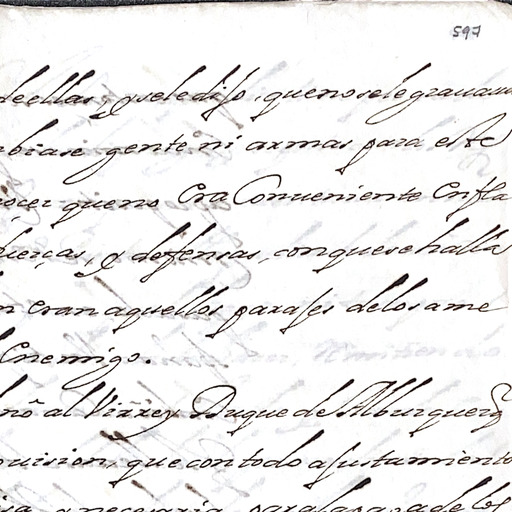 597
de ellas, y se le dijo, que no se le grauaua
mbiase gente ni armas para este
nocer que no era Conueniente enfla
fuerças, y defensas, con que se halla
n eran aquellos parajes de los ame
l Enemigo.
al Virrey Duque de Alburquerq
ouision, que con todo ajustamiento
necesaria para la paga de los